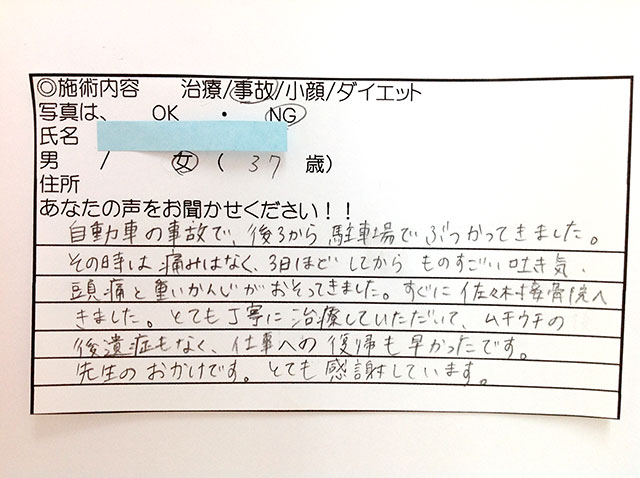 ◎施術内容 治療/事故/小顔/ダイエット
写真は、 OK ・ NG
氏名
男 / 女 ( 37 歳)
住所
あなたの声をお聞かせください！！
自動車の事故で、後ろから駐車場でぶつかってきました。
その時は痛みはなく、3日ほどしてからものすごい吐き気、
頭痛と重いかんじがおそってきました。すぐに佐々木接骨院へ
きました。とても丁寧に治療していただいて、ムチウチの
後遺症もなく、仕事への復帰も早かったです。
先生のおかげです。とても感謝しています。